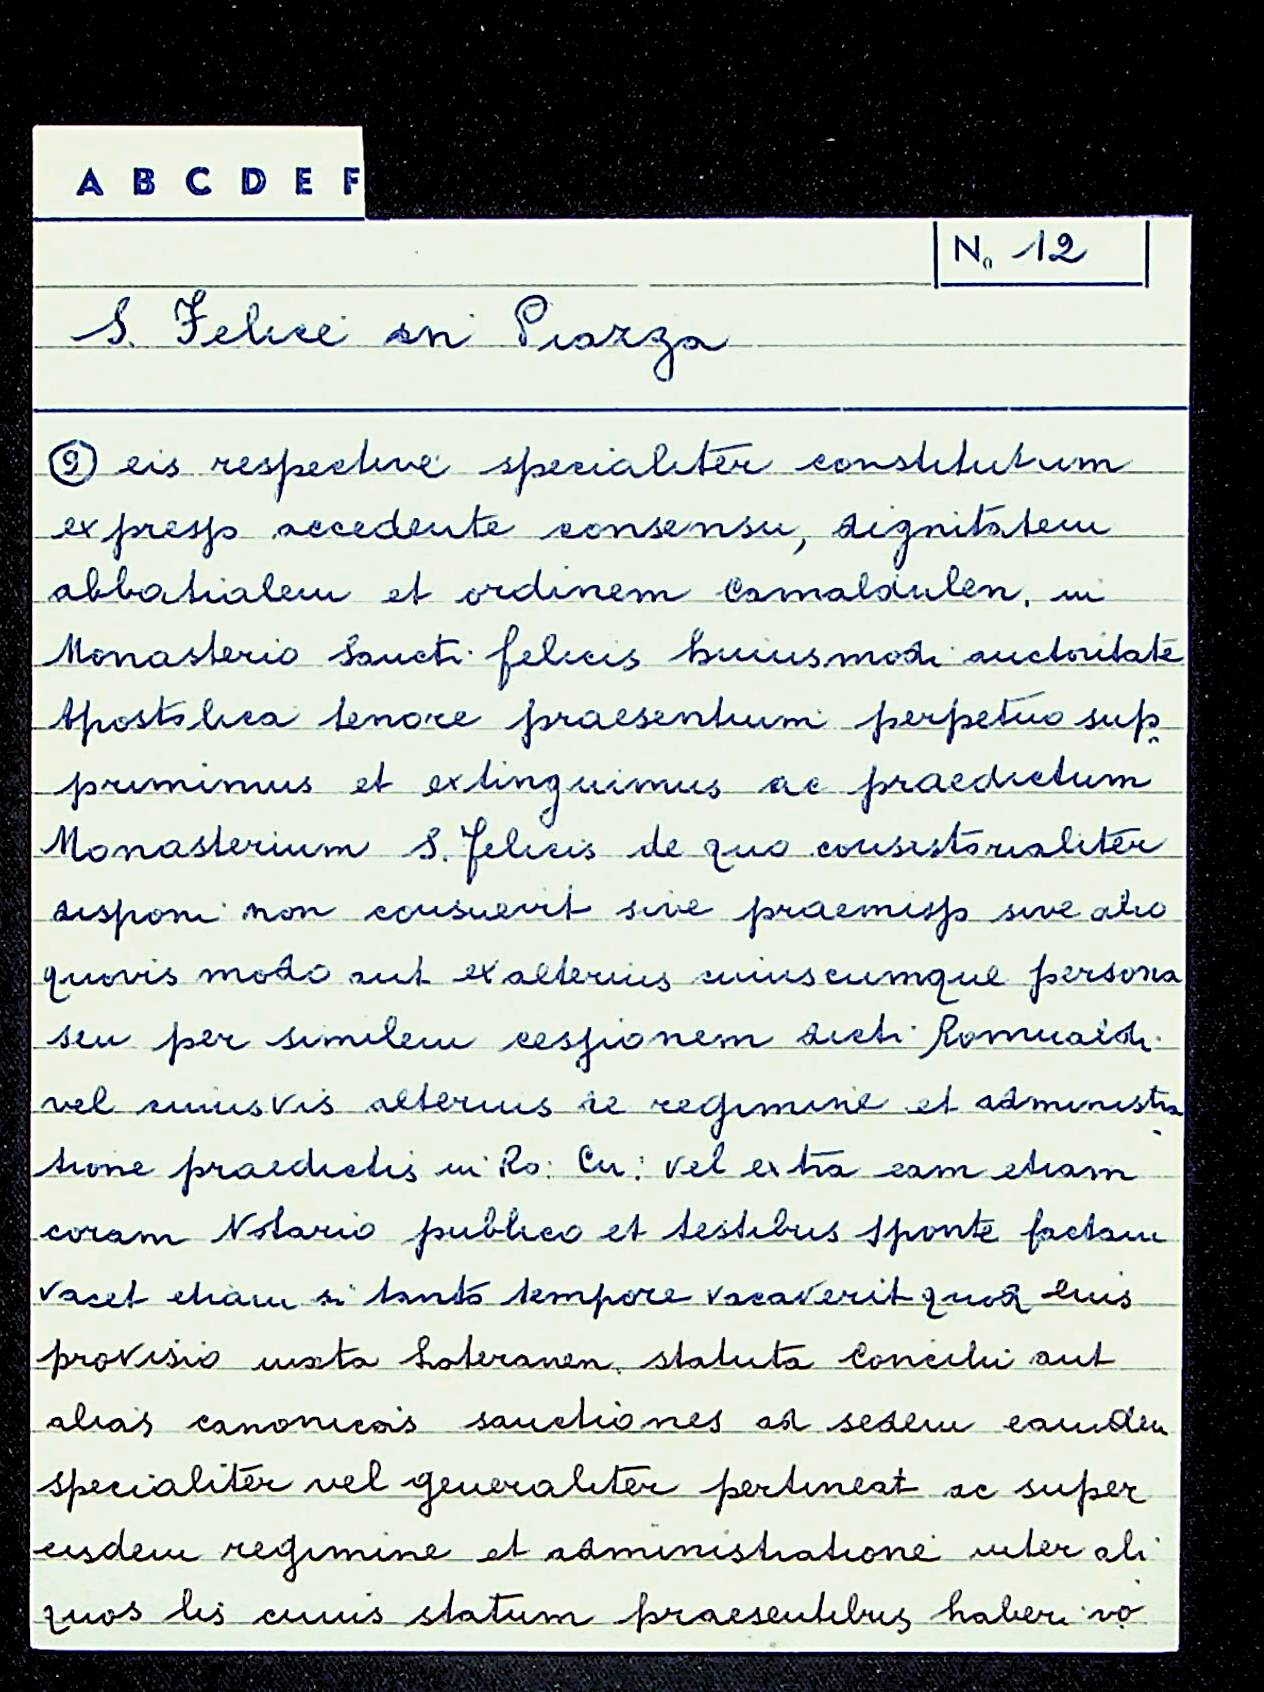 A B C D E F
No 12
S. Felice in Piazza
9 eis respective specialiter constitutum
expresso accedente consensu, dignitatem
abbatialem et ordinem Camaldulen. in
Monasterio Sancti felicis huiusmodi auctoritate
Apostolica tenore praesentium perpetuo sup
primimus et extinguimus ac praedictum
Monasterium S. Felicis de quo consistorialiter
disponi non consuevit sive praemisso sive alio
quovis modo aut ex alterius cuiuscumque persona
seu per similem cessionem dicti Romualdi
vel cuiusvis alterius de regimine et administra
tione praedictis in Ro: Cu: vel extra eam etiam
coram Notario publico et testibus sponte factam
vacet etiam si tanto tempore vacaverit quod eius
provisio iuxta Lateranen. statuta Concilii aut
alias canonicas sanctiones ad sedem eamdem
specialiter vel generaliter pertineat ac super
eisdem regimine et administratione inter ali
quos lis cuius statum praesentibus haberi vo